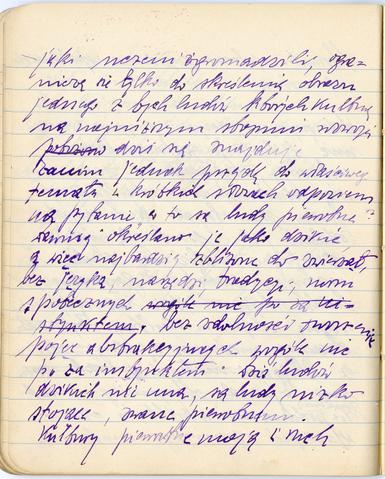 jaki uczeni zgromadzili, ogra-
niczę się tylko do skreślenia obrazu
jednego z tych ludów których kultura
na najniższym stopniu rozwoju
dziś się znajduje
Zanim jednak przejdę do właściwego
tematu w krótkich słowach odpowiem
na pytanie a co to są ludy pierwotne?
Dawniej określano je jako dzikie
a więc najbardziej zbliżone do zwierząt,
bez języka, narzędzi tradycji, norm
społecznych wogóle nic po za in-
stynktem, bez zdolności tworzenia
pojęć abstrakcyjnych wogóle nic
po za instynktem. Dziś ludzi
dzikich nie ma, są ludy nisko
stojące, zwane pierwotnemi.
Kultury pierwotne mają i swoją